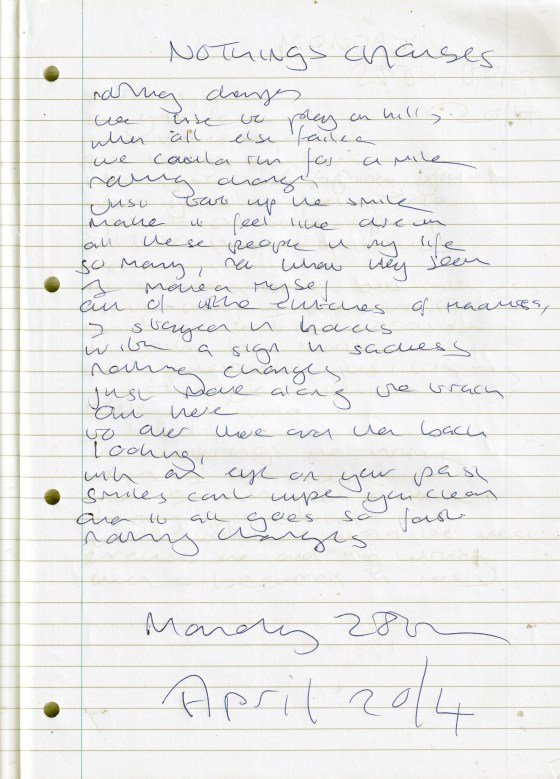 NOTHINGS CHANGES
nothing changes
we use to play on hills
when all else failed
we could run for a mile
nothing changes
Just took up the smile
make it feel like dream
all these people in my life
so many, not what they seem
I moved myself
out of the clutches of madness,
I stayed in hands
with a sign in sadness
nothing changes
just move along the track
Out here
to over there and then back
looking,
with an eye on your past
smiles can't wipe you clean
and it all goes so fast
nothing changes
Monday 28th
April 2014